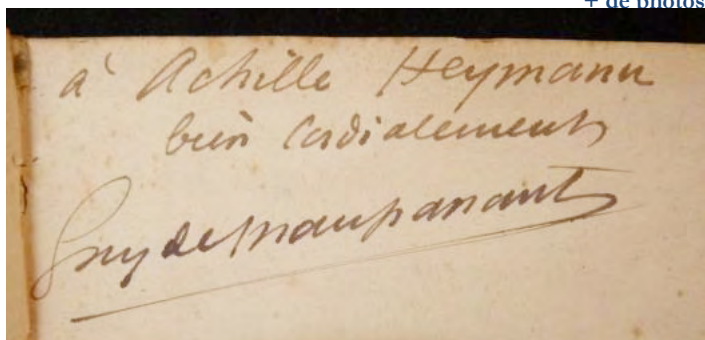 + de photos
à Achille Heymann
bien Cordialement
Guy de Maupassant